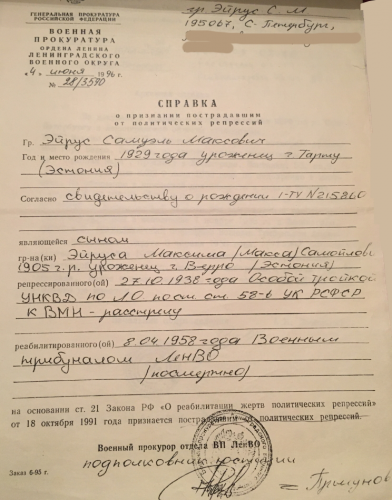 ГЕНЕРАЛЬНАЯ ПРОКУРАТУРА
РОССИЙСКОЙ ФЕДЕРАЦИИ
ВОЕННАЯ
ПРОКУРАТУРА
ОРДЕНА ЛЕНИНА
ЛЕНИНГРАДСКОГО
ВОЕННОГО ОКРУГА
„4 июня 1996 г.
№ 28/3570
гр. Эйрус С. М
195067, С-Петербург,
СПРАВКА
о признании пострадавшим
от политических репрессий
Гр. Эйрус Самуэль Максович
Год и место рождения 1929 года уроженец г. Тарту
(Эстония)
Согласно свидетельству о рождении
являющейся сыном
гр-на(ки) Эйруса Максима (Макса) Самойлов
1905 г.р. уроженец г. Выро (Эстония)
репрессированного(ой) 27.10.1938 Особой тройкой
УНКВД по ЛО по ст. 58-6 УК РСФСР
к ВМН - расстрелу
реабилитированного(ой) 8.04.1958 года Военным
трибуналом ЛенВО
(посмертно)
на основании ст. 21 Закона РФ «О реабилитации жертв политических репрессий»
от 18 октября 1991 года признается пострадавшим от политических репрессий.
Военный прокурор отдела ВП ЛенВО
подполковник юстиции
Заказ 6-95 г.